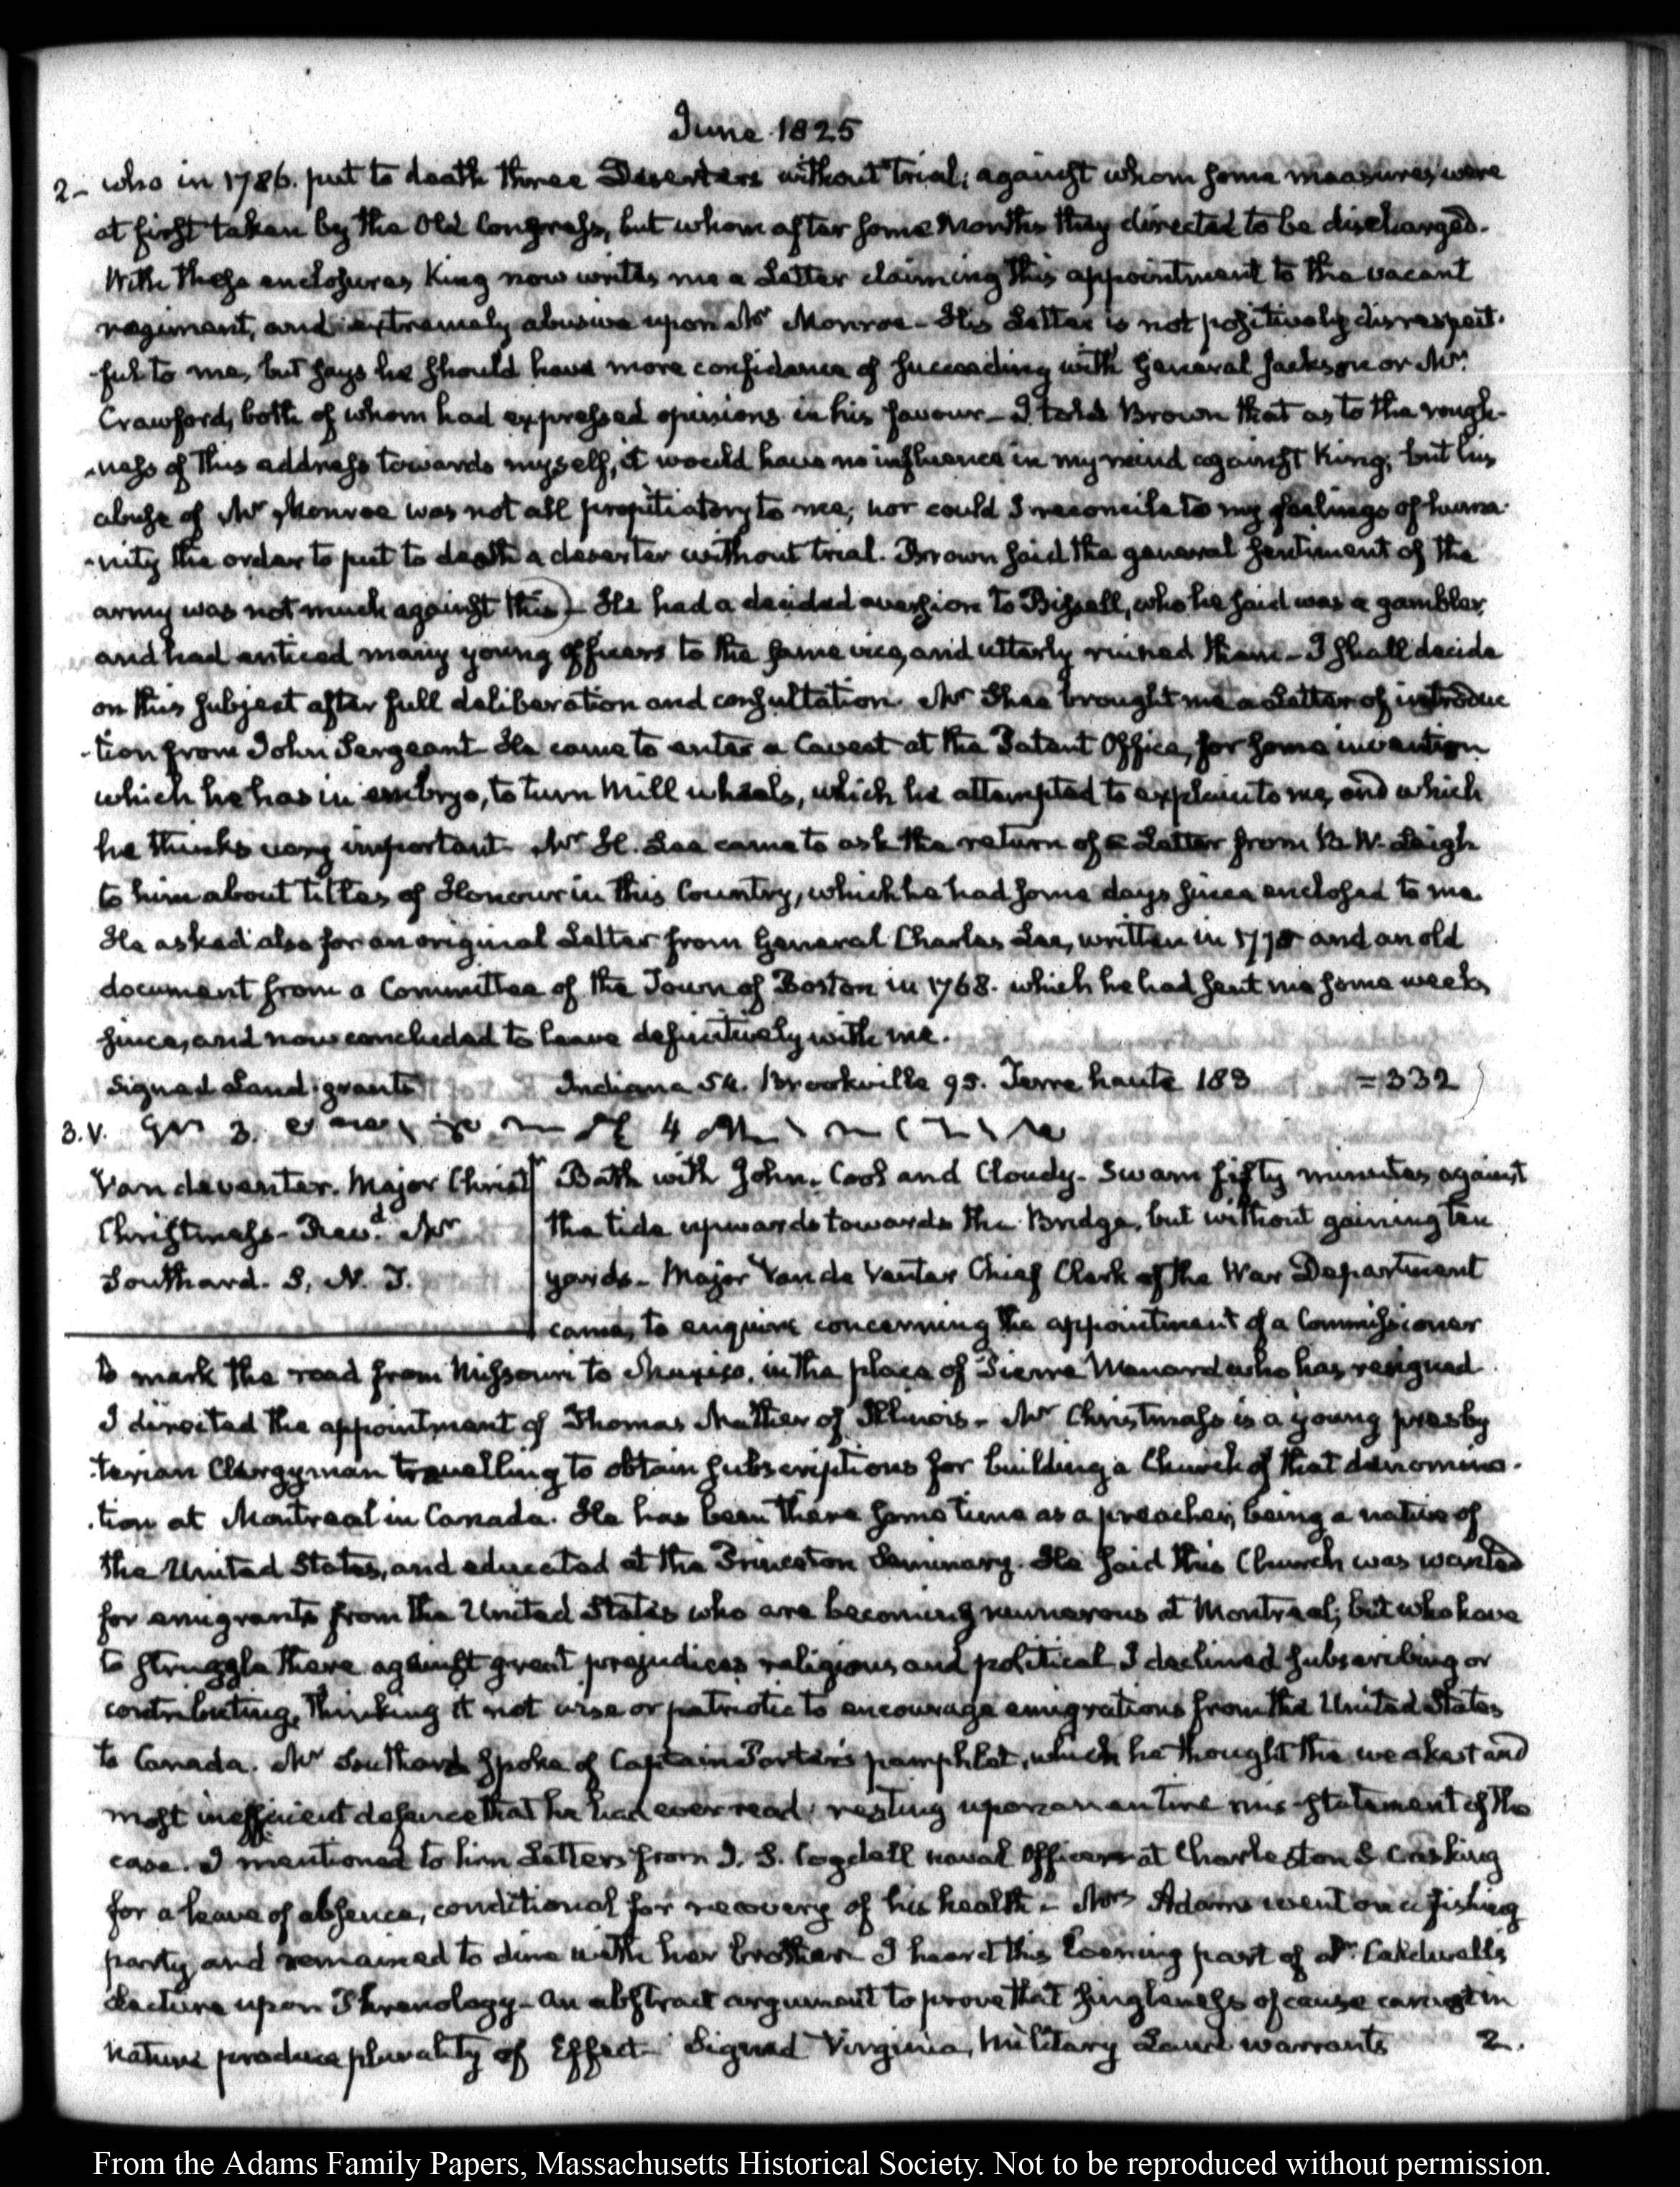 June 1825
2- who in 1786. put to death three Deserters without trial; against whom some measures were
at first taken by the Old Congress, but whom after some Months they directed to be discharged.
With these enclosures King now writes me a Letter claiming this appointment to the vacant
regiment, and extremely abusive upon Mr Monroe- His Letter is not positively disrespect-
-ful to me, but says he should have more confidence of succeeding with General Jackson or Mr
Crawford, both of whom had expressed opinions in his favour- I told Brown that as to the rough-
-ness of this address towards myself, it would have no influence in my mind against King; but his
abuse of Mr Monroe was not all propitiatory to me; nor could I reconcile to my feelings of huma-
-nity the order to put to death a deserter without trial. Brown said the general sentiment of the
army was not much against this)- He had a decided aversion to Bissell, who he said was a gambler,
and had enticed many young officers to the same vice, and utterly ruined them- I shall decide
on this subject after full deliberation and consultation. Mr Shee brought me a Letter of introduc
-tion from John Sergeant- He came to enter a Caveat at the Patent Office, for some invention
which he has in embryo, to turn Mill wheels, which he attempted to explain to me, and which
he thinks very important- Mr H. Lee came to ask the return of a Letter from B. W. Leigh
to him about titles of Honour in this Country, which he had some days since enclosed to me.
He asked also for an original Letter from General Charles Lee, written in and an old
document from a Committee of the Town of Boston in 1768. which he had sent me some weeks
since, and now concluded to leave definitively with me.
Signed Land-grants Indiana 54. Brookville 95. Terre haute 183 =332
3. V.
Van deventer. Major Christr
Christmass- Revd. Mr
Southard. S, N. J.
Bath with John. Cool and Cloudy- Swam fifty minutes against
the tide upwards towards the Bridge, but without gaining ten
yards- Major Van de Venter Chief Clerk of the War Department
came, to enquire concerning the appointment of a Commissioner
to mark the road from Missouri to Mexico, in the place of Pierre Menard who has resigned
I directed the appointment of Thomas Mather of Illinois- Mr Christmass is a young presby
-terian Clergyman travelling to obtain subscriptions for building a Church of that denomina-
-tion at Montreal in Canada. He has been there some time as a preacher; being a native of
the United States, and educated at the Princeton Seminary. He said this Church was wanted
for emigrants from the United States who are becoming numerous at Montreal; but who have
to struggle there against great prejudices religious and political I declined subscribing or
contributing, thinking it not wise or patriotic to encourage emigrations from the United States
to Canada. Mr Southard spoke of Captain Porter's pamphlet, which he thought the weakest and
most inefficient defence that he had ever read; resting upon an entire mis-statement of the
case. I mentioned to him Letters from J. S. Cogdell naval Officer at Charleston S. C. asking
for a leave of absence, conditional for recovery of his health- Mrs Adams went on a fishing
party and remained to dine with her brother- I heard this Evening part of Dr. Caldwell's
Lecture upon Phrenology- An abstract argument to prove that singleness of cause cannot in
nature produce plurality of Effect- Signed Virginia, Military Land warrants 2.
From the Adams Family Papers, Massachusetts Historical Society. Not to be reproduced without permission.